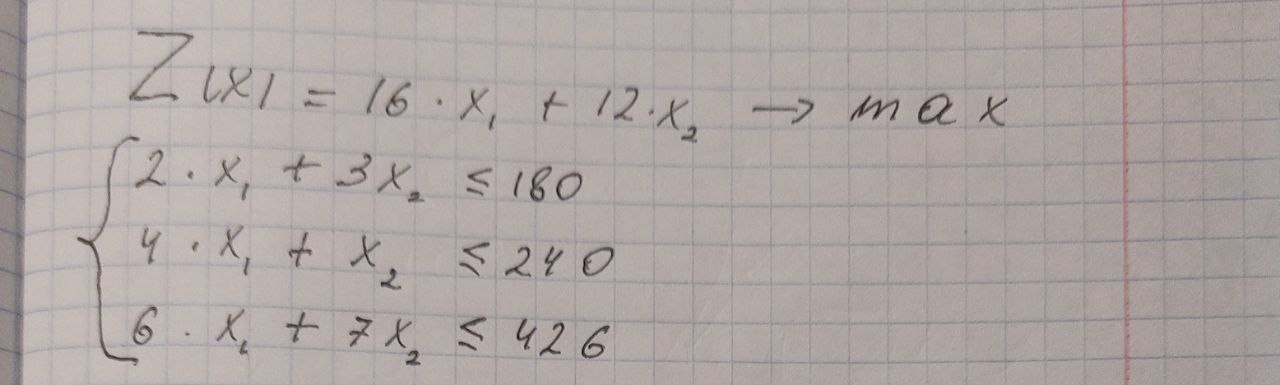 Z(x) = 16 · x₁ + 12 · x₂ → max
2 · x₁ + 3x₂ ≤ 180
4 · x₁ + x₂ ≤ 240
6 · x₁ + 7x₂ ≤ 426